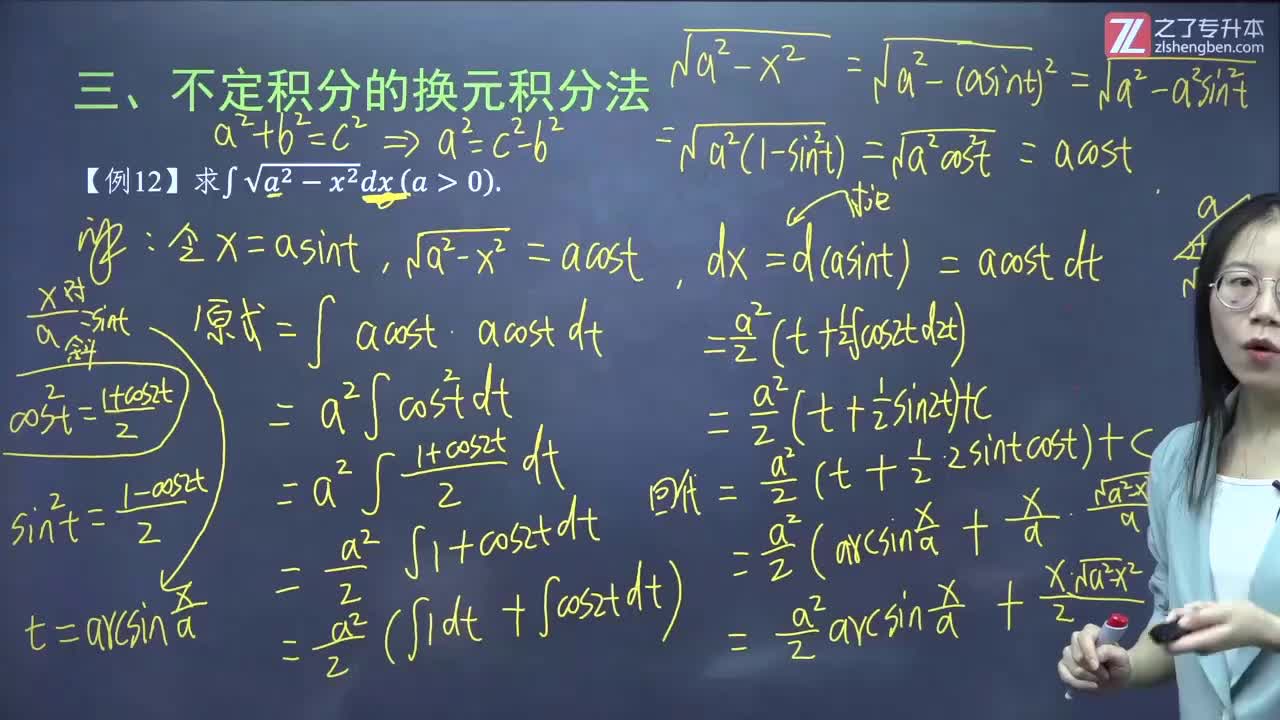 之了专升本
zlshengben.com
三、不定积分的换元积分法
√(a²-x²) = √(a²-(asint)²) = √(a²-a²sin²t)
= √(a²(1-sin²t)) = √(a²cos²t) = acost
a²+b²=c² ⇒ a²=c²-b²
【例12】求∫√(a²−x²)dx (a > 0).
解：令 x=asint , √(a²-x²) = acost , dx = d(asint) = acost dt
a
x/a = sint
cos²t = (1+cos2t)/2
sin²t = (1-cos2t)/2
t = arcsin x/a
原式 = ∫ acost · acost dt
= a² ∫ cos²t dt
= a² ∫ (1+cos2t)/2 dt
= a²/2 ∫ 1+cos2t dt
= a²/2 (∫1dt + ∫cos2t dt)
= a²/2 (t + 1/2 ∫cos2t d2t)
= a²/2 (t + 1/2 sin2t)+C
回代 = a²/2 (t + 1/2 · 2sintcost) + C
= a²/2 (arcsin x/a + x/a · √(a²-x
a
= a²/2 arcsin x/a + x·√(a²-x²)/2